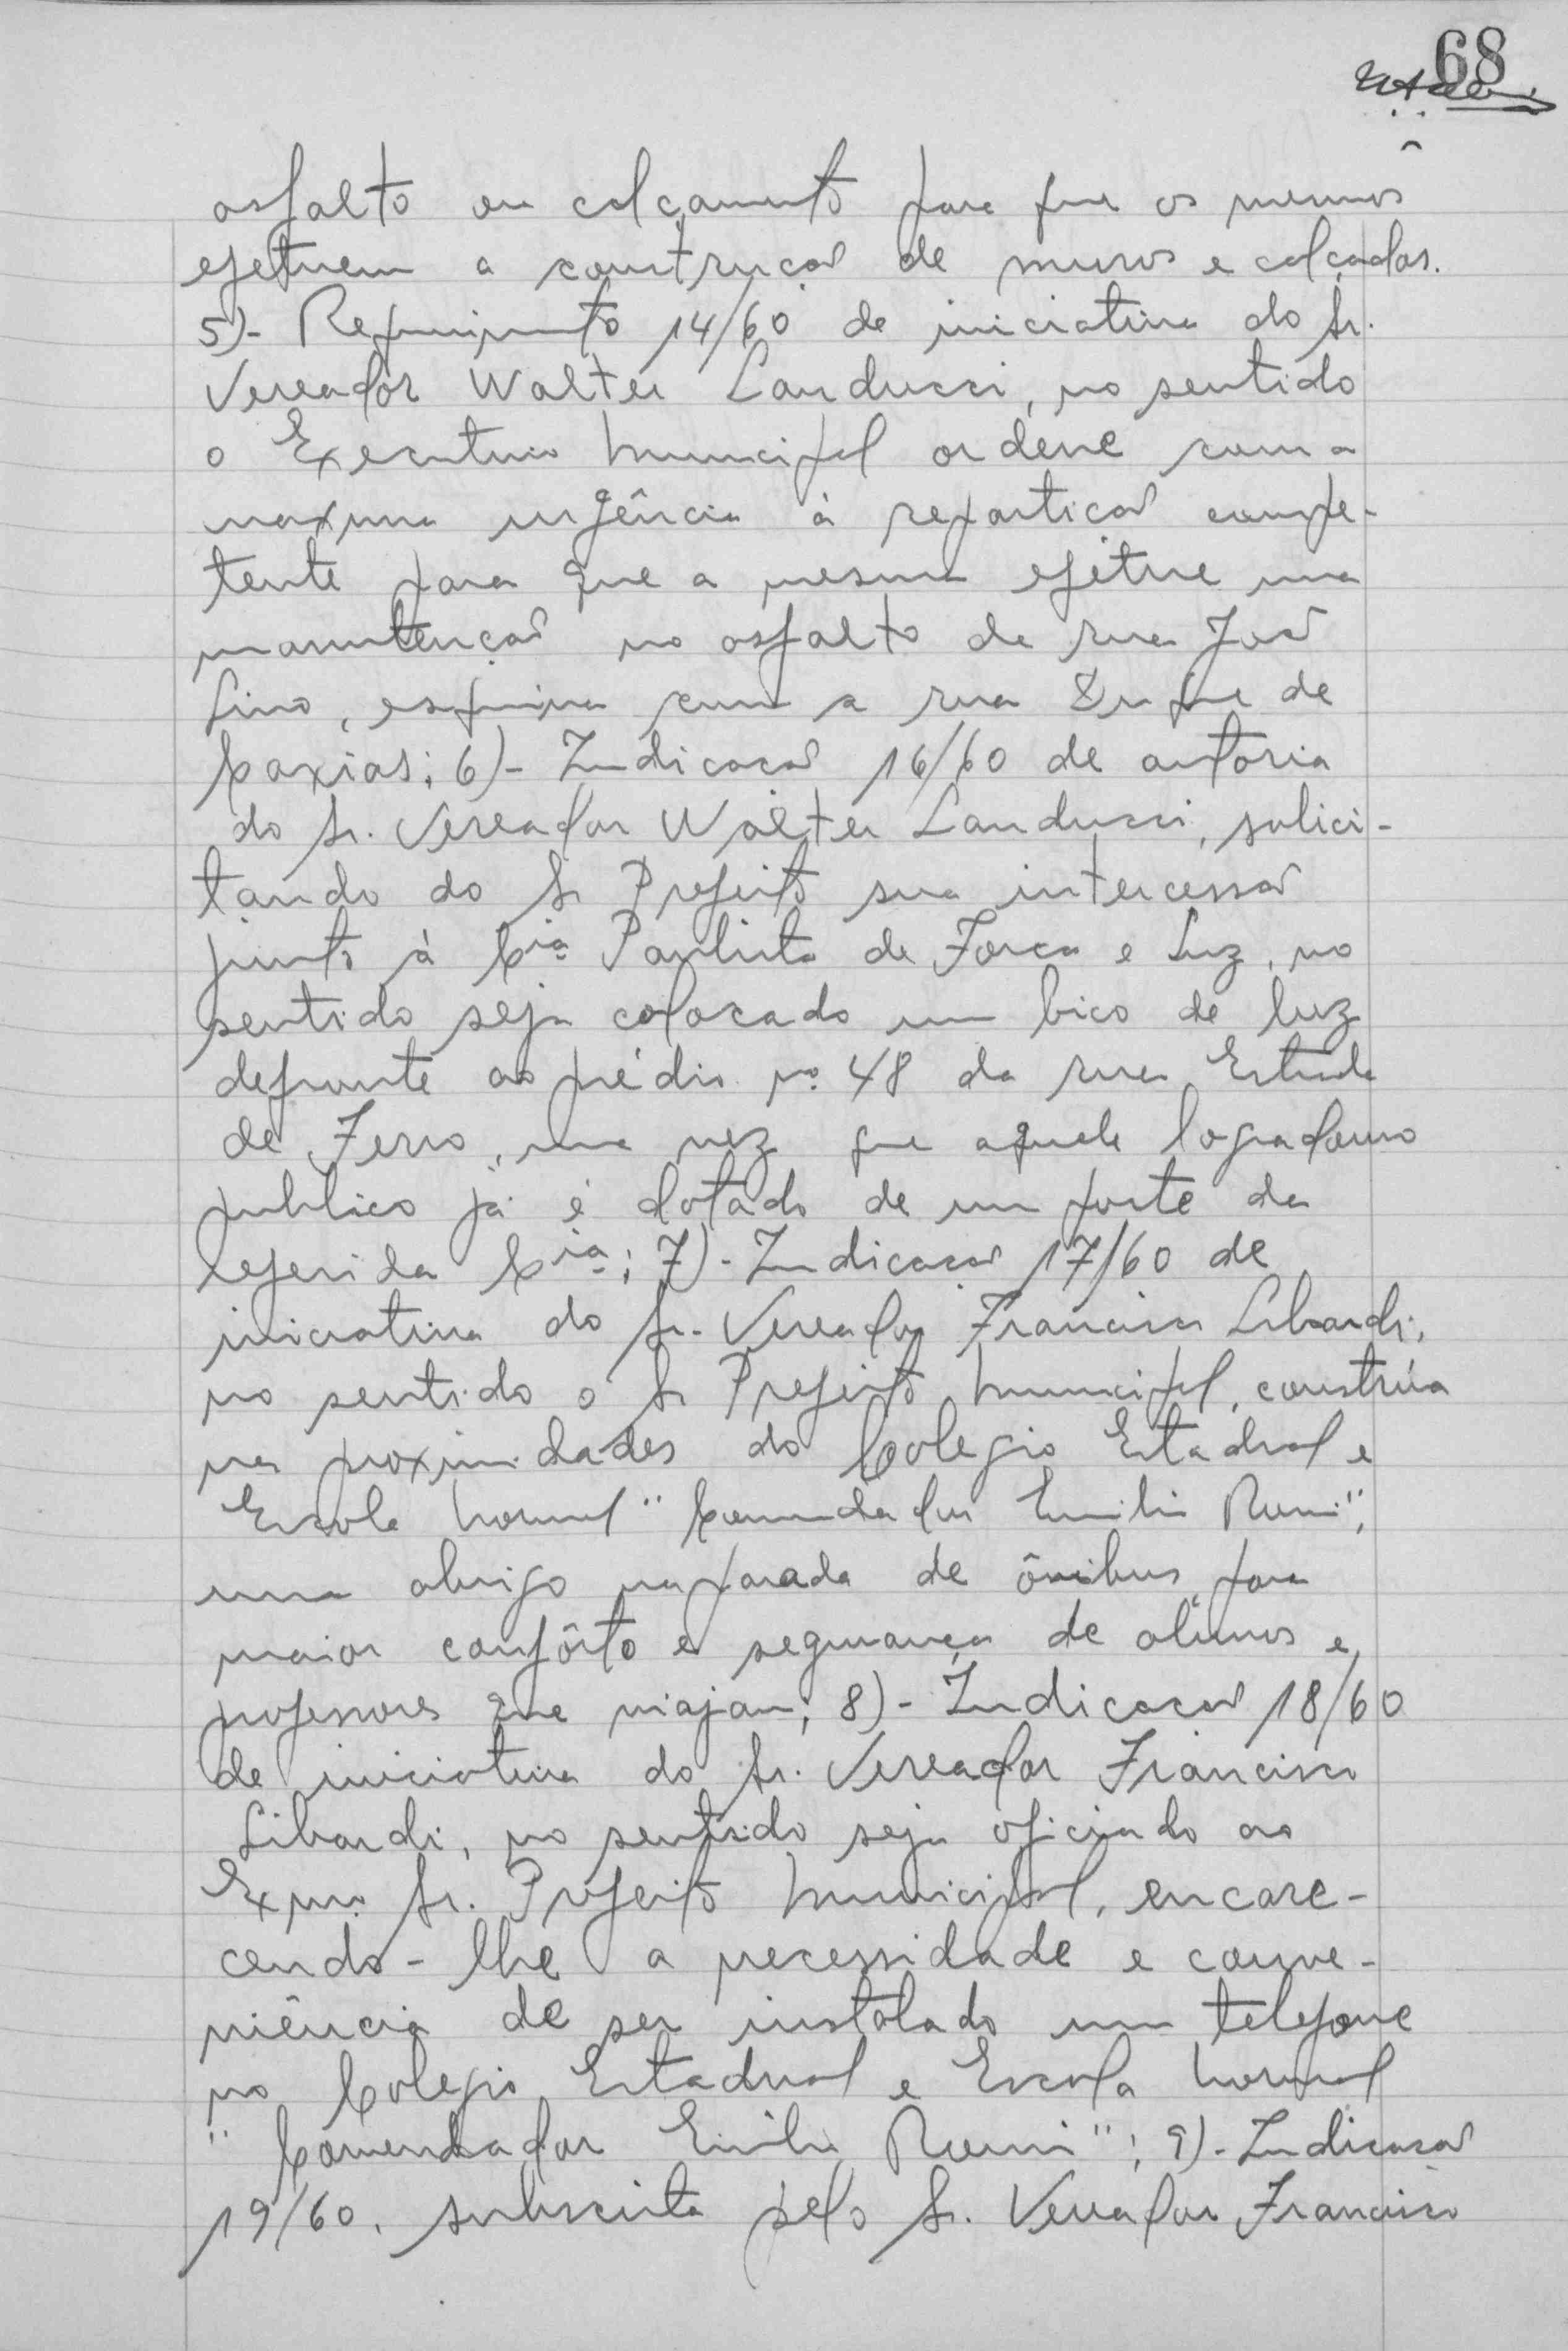 68
asfalto ou calçamento para que os mesmos
efetuem a construção de muros e calçadas.
5)- Requerimento 14/60 de iniciativa do Sr.
Vereador Walter Landucci, no sentido
o Executivo Municipal ordene com a
maxima urgência à repartição compe-
tente para que a mesma efetue uma
manutenção no asfalto da rua José
Lino, esquina com a rua Duque de
Caxias; 6)- Indicação 16/60 de autoria
do Sr. Vereador Walter Landucci, solici-
tando do Sr Prefeito sua intercessão
junto à Cia. Paulista de Força e Luz, no
sentido seja colocado um bico de luz
defronte ao prédio nº 48 da rua Estrada
de Ferro, uma vez que aquele logradouro
publico já é dotado de um poste da
referida Cia.; 7)- Indicação 17/60 de
iniciativa do Sr. Vereador Francisco Libardi,
no sentido o Sr Prefeito Municipal, construa
nas proximidades do Colegio Estadual e
Escola Normal "Comendador Emilio Romi",
um abrigo na parada de ônibus para
maior confôrto e segurança de alunos e
professores que viajam; 8)- Indicação 18/60
de iniciativa do Sr. Vereador Francisco
Libardi, no sentido seja oficiado ao
Exmo Sr. Prefeito Municipal, encare-
cendo-lhe a necessidade e conve-
niência de ser instalado um telefone
no Colegio Estadual e Escola Normal
"Comendador Emilio Romi"; 9)- Indicação
19/60, subscrita pelo Sr. Vereador Francisco